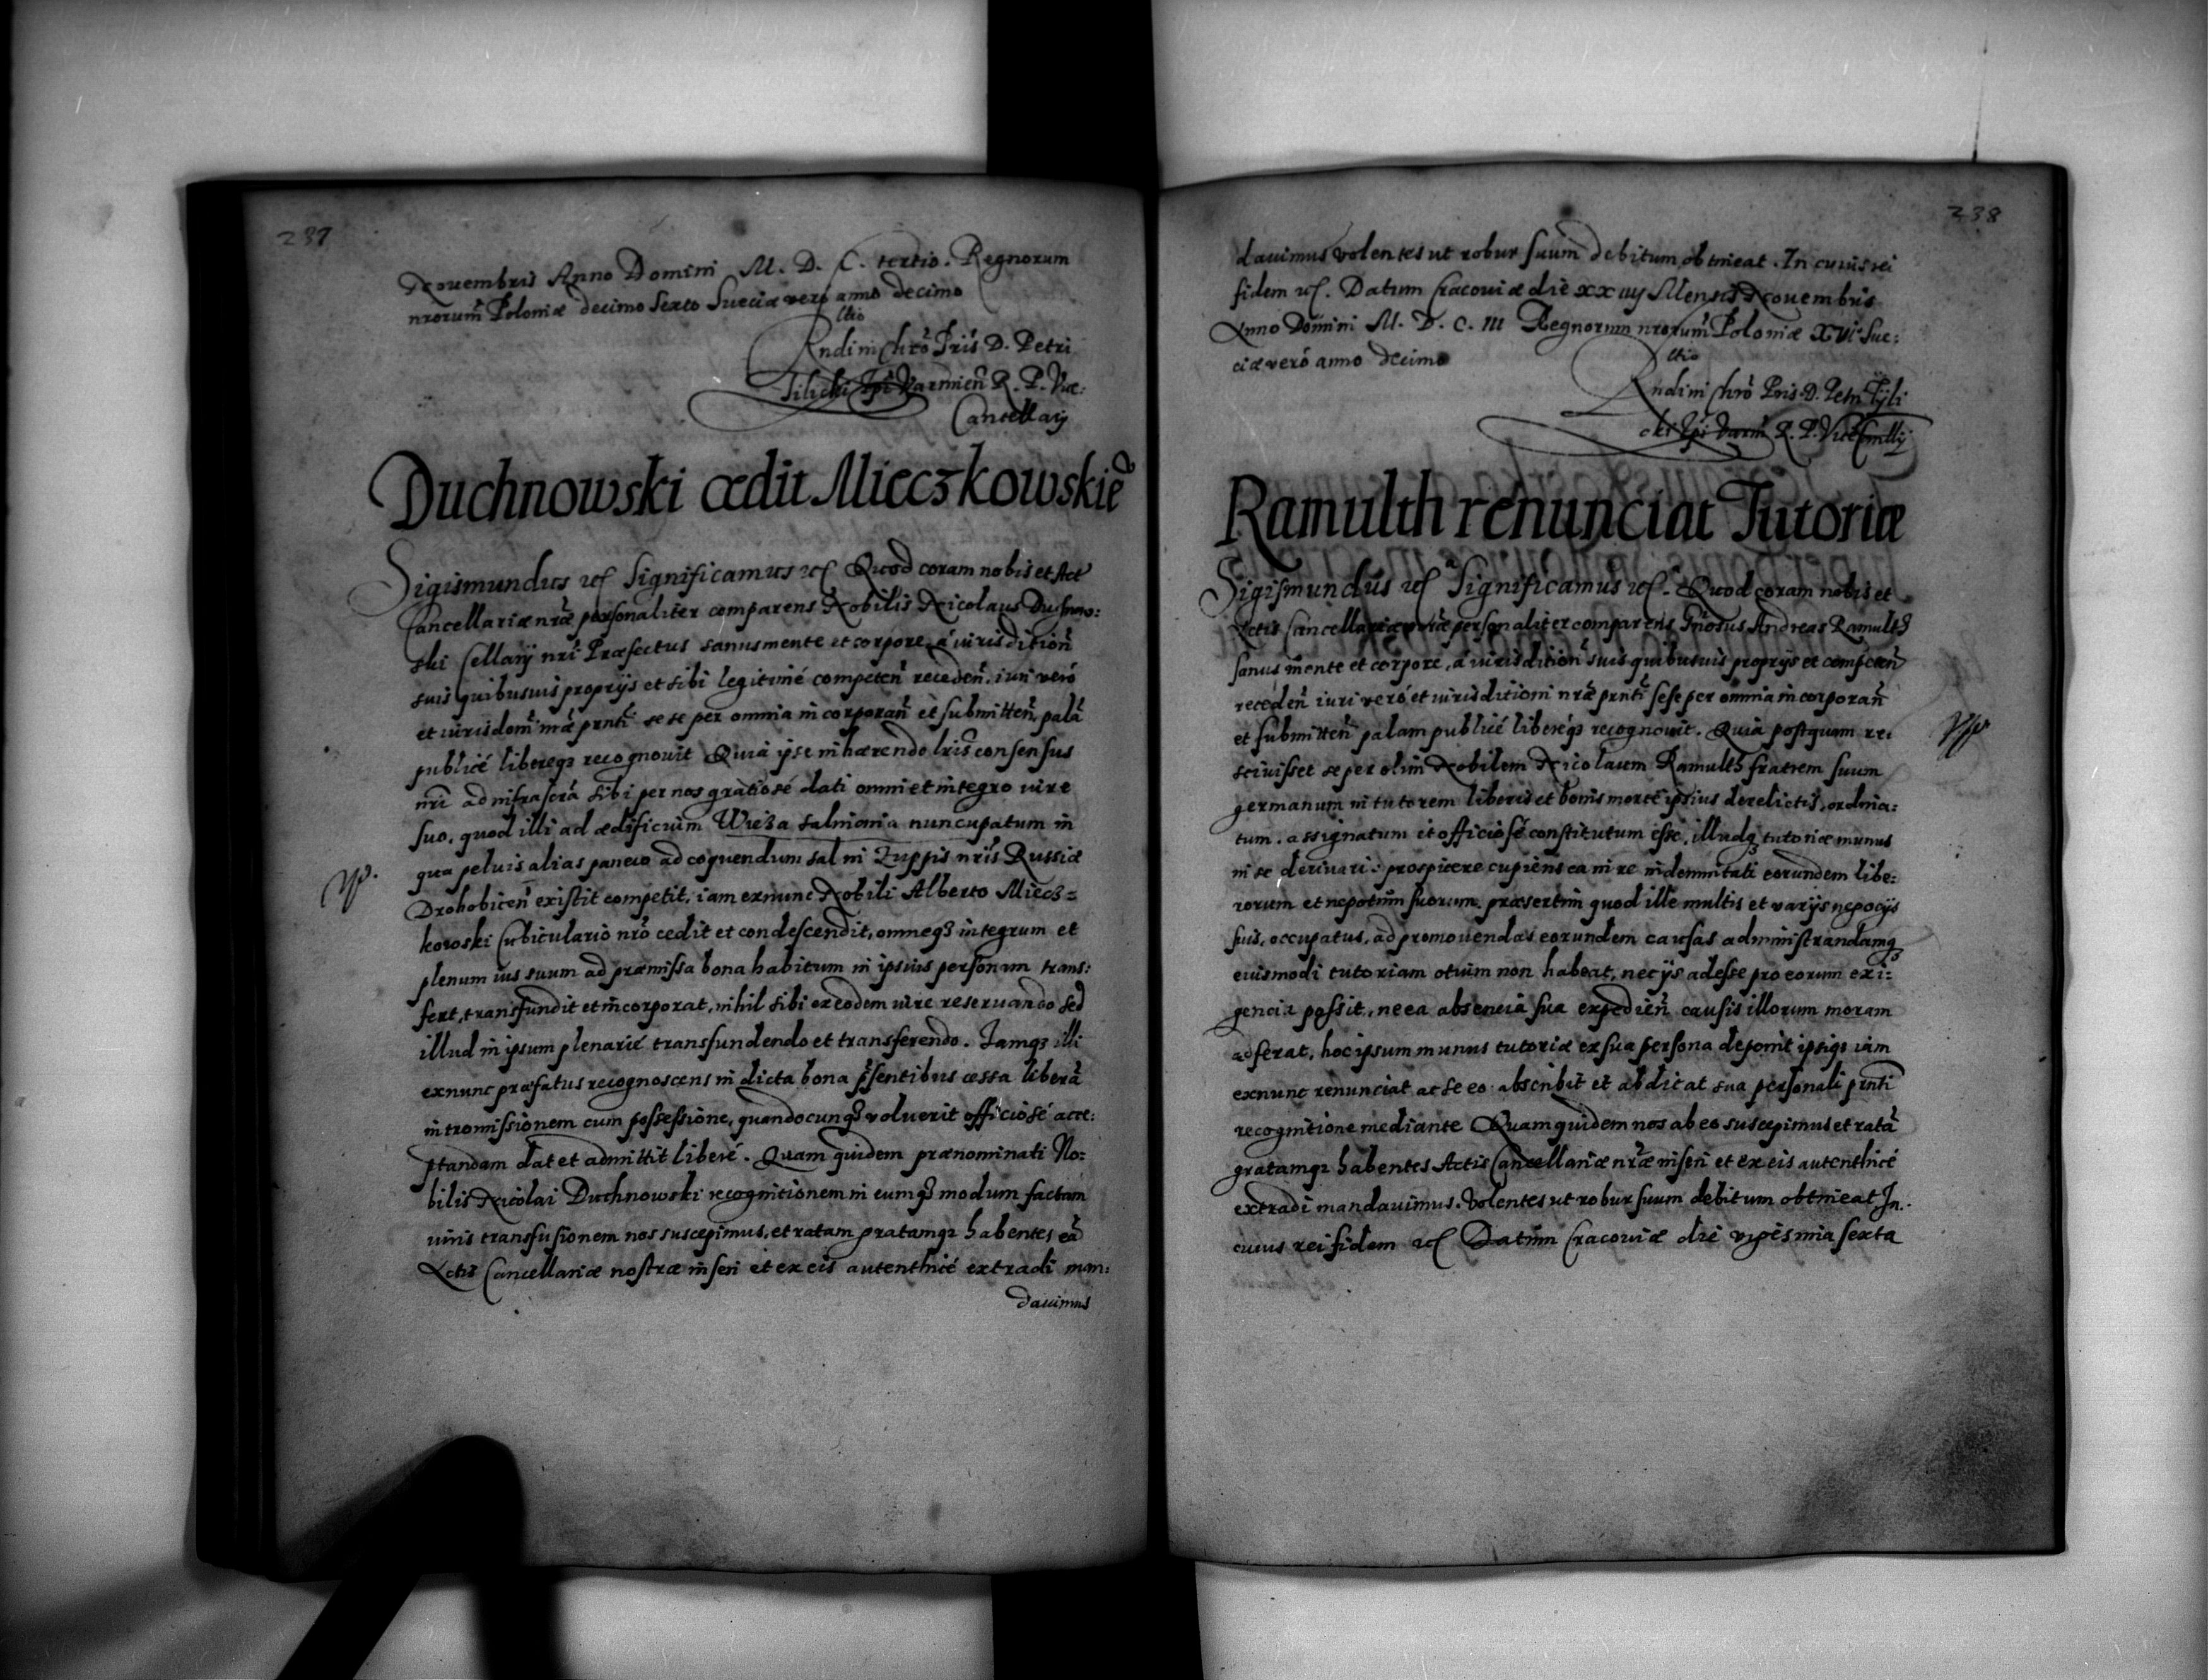 237
Nouembris Anno Domini M. D. C. tertio. Regnorum
nrorum Poloniæ decimo sexto Sueciæ vero anno decimo
ltio
Rndi in Chro Pris D. Petri
Tilicki Epi Varmien R. P. Vice:
Cancellarij
Duchnowski cedit Mieczkowskie
Sigismundus etc Significamus etc Quod coram nobis et Act
Cancellariæ nræ personaliter comparens Nobilis Nicolaus Duchno:
ski Cellarij nri Præfectus sanus mente et corpore, à iurisdition
suis quibusuis proprijs et sibi legitimé competen receden. iuri veró
et iurisdoni nræ pnti se se per omnia incorporan et submitten, palã
publicé libereqз recognouit Quia ipse inhærendo lris consensus
nri ad infrascra sibi per nos gratiosé dati omni et integro iure
suo, quod illi ad ædificium Wieża salmaria nuncupatum in
qua peluis alias panew ad coquendum sal in Zuppis nris Russiæ
Drohobicen existit competit, iam exnunc Nobili Alberto Miecz=
kowski Cubiculario nro cedit et condescendit, omneqз integrum et
plenum ius suum ad præmissa bona habitum in ipsius personam trans:
fert, transfundit et incorporat, nihil sibi ex eodem iure reseruando sed
illud in ipsum plenarié transfundendo et transferendo. Iamqз illi
exnunc præfatus recognoscens in dicta bona psentibus cessa liberã
intromissionem cum possessione, quandocunqз voluerit officiosé acce:
ptandam dat et admittit liberé. Quam quidem prænominati No:
bilis Nicolai Duchnowski recognitionem in eumqз modum factam
iuris transfusionem nos suscepimus, et ratam gratamqз habentes eã
Actis Cancellariæ nostræ inseri et ex eis autenthicé extradi man:
dauimus
238
dauimus volentes ut robur suum debitum obtineat. In cuius rei
fidem etc. Datum Cracouiæ die xx iiij Mensis Nouembris
Anno Domini M. D. C. III Regnorum nrorum Poloniæ XVI Sue:
ciæ veró anno decimo
ltio
Rndi in Chro Pris D. Petri Tyli
cki Epi Varm R. P. ViceCancllij
Ramulth renunciat Tutoriæ
Sigismundus etc Significamus etc. Quod coram nobis et
Actis Cancellariæ nræ personaliter comparens Gnosus Andreas Ramulth
sanus mente et corpore, á iurisdition suis quibusuis proprijs et competen
receden iuri veró et iurisditioni nræ pnti sese per omnia incorporan
et submitten palam publicé libereqз recognouit. Quia postquam re:
sciuisset se per olim Nobilem Nicolaum Ramulth fratrem suum
germanum in tutorem liberis et bonis morte ipsius derelictis, ordina:
tum. assignatum et officiosé constitutum esse, illudqз tutoriæ munus
in se deriuari: prospicere cupiens ea in re indemnitati eorundem libe:
rorum et nepotum suorum. præsertim quod ille multis et varijs negocijs
suis, occupatus, ad promouendas eorundem causas administrandamqз
eiusmodi tutoriam otium non habeat, nec ijs adesse pro eorum exi:
gencia possit, ne ea absencia sua expedien causis illorum moram
adferat, hoc ipsum munus tutoriæ ex sua persona deponit ipsiqз iam
exnunc renunciat ac se eo abscribit et abdicat sua personali pnti
recognitione mediante Quam quidem nos ab eo suscepimus et ratã
gratamqз habentes Actis Cancellariæ nræ inseri et ex eis autenthicé
extradi mandauimus. Volentes ut robur suum debitum obtineat In
cuius rei fidem etc Datum Cracouiæ die vigesima sexta